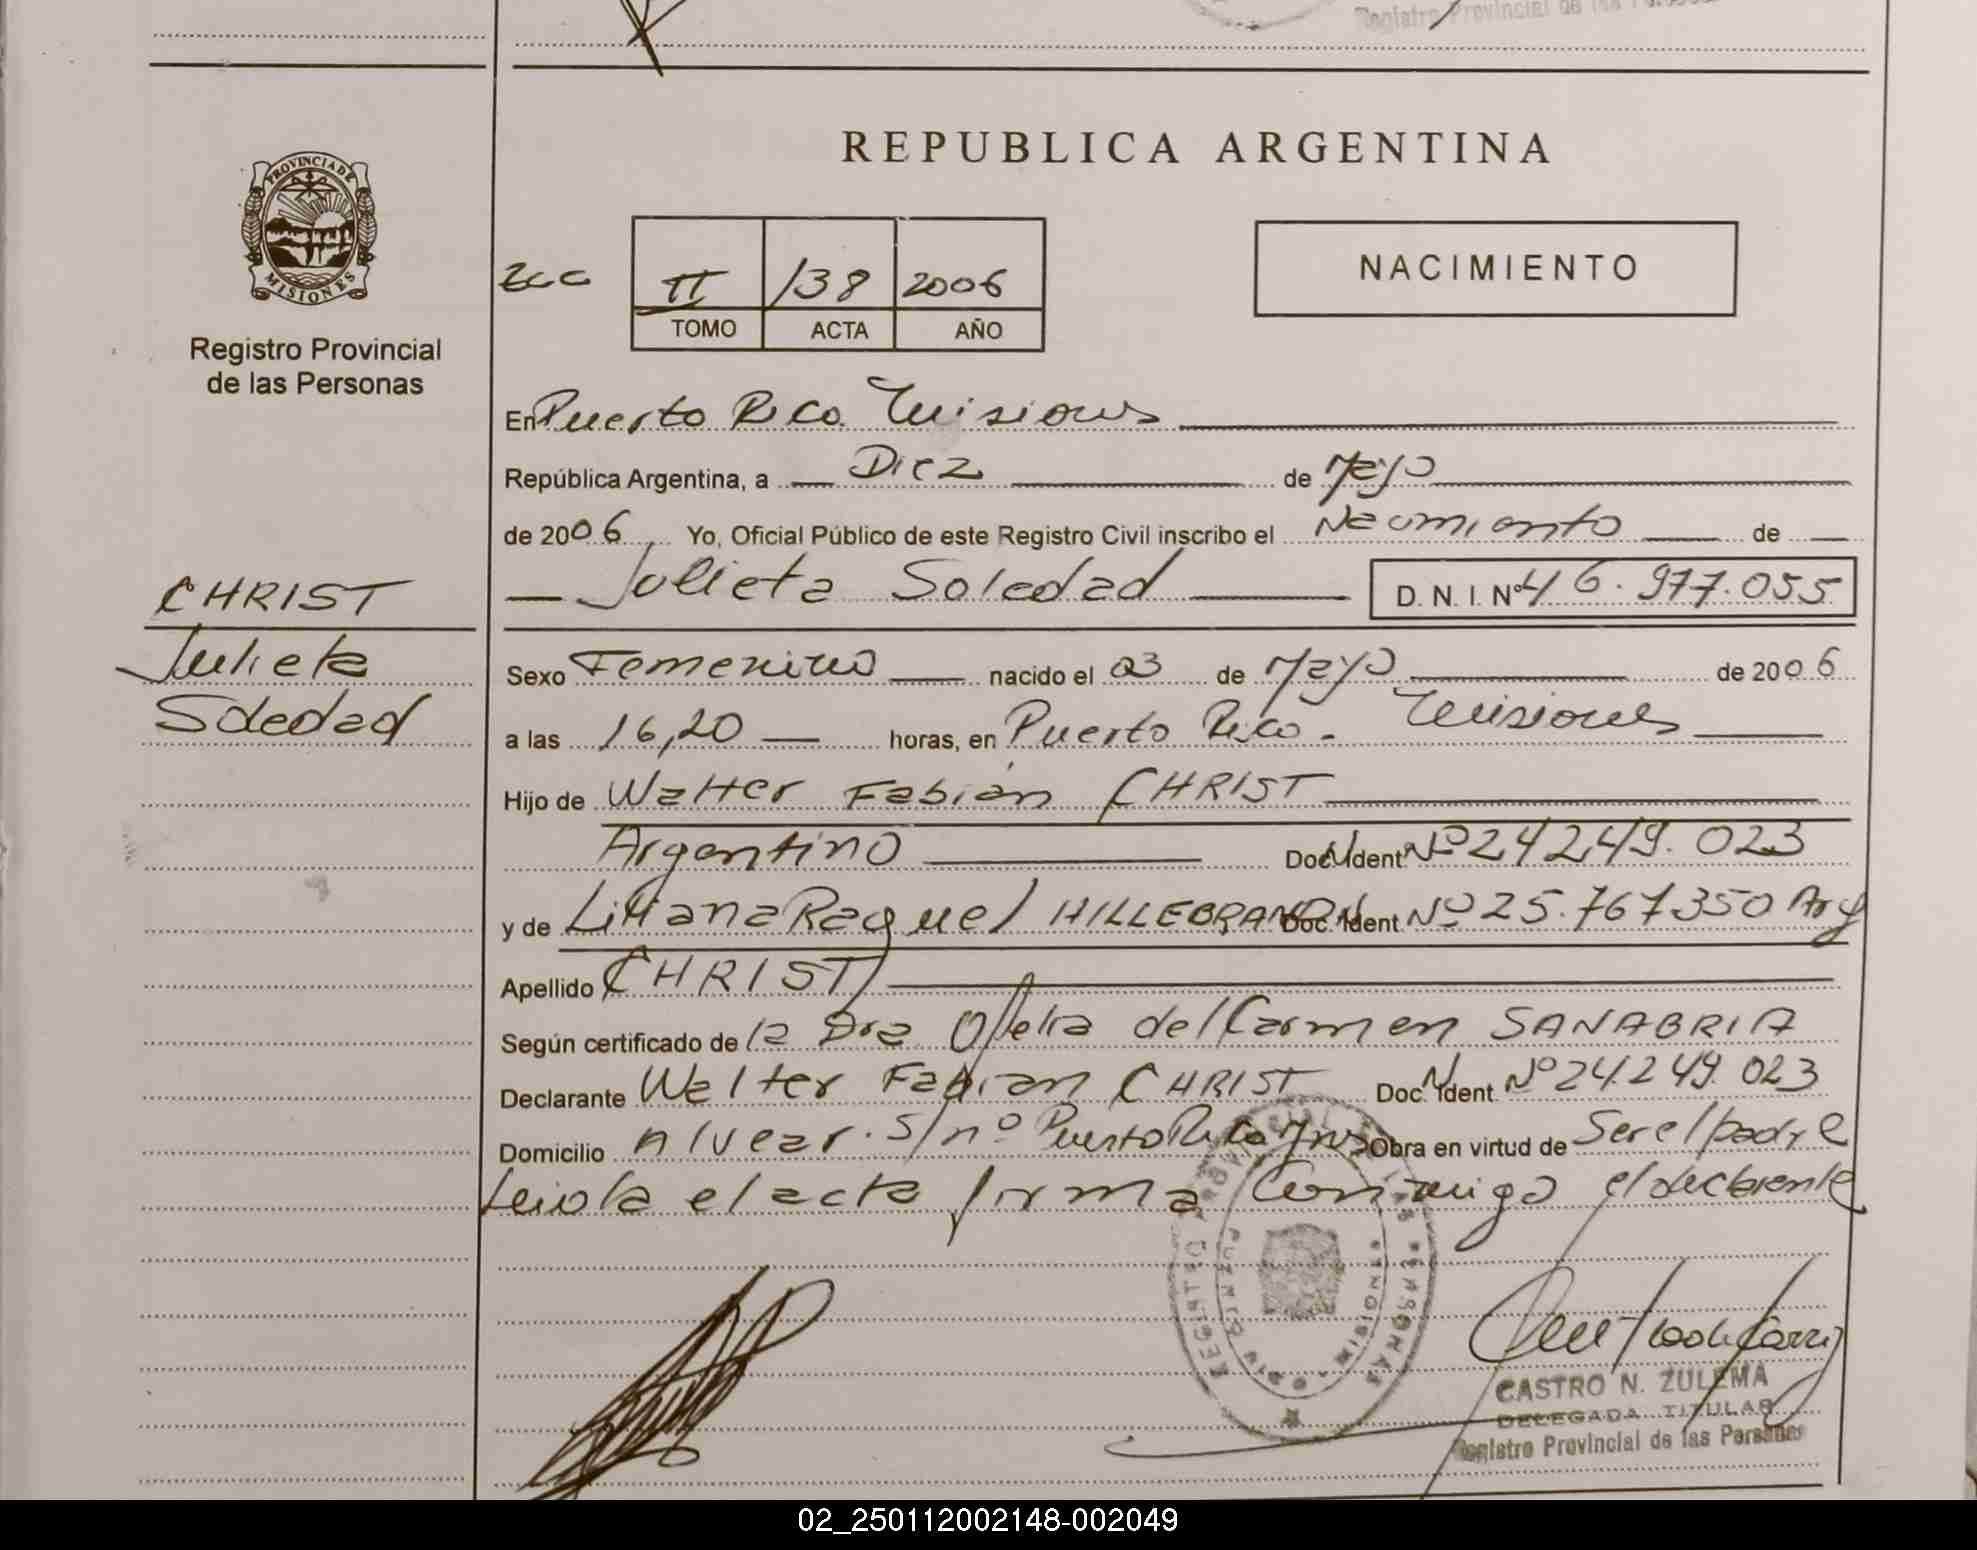 Registro Provincial de las
REPUBLICA ARGENTINA
PROVINCIA DE
MISIONES
Registro Provincial
de las Personas
II 138 2006
TOMO ACTA AÑO
NACIMIENTO
En Puerto Rico. Misiones
República Argentina, a Diez de Mayo
de 2006 Yo, Oficial Público de este Registro Civil inscribo el Nacimiento de
Julieta Soledad D. N. I. Nº 46.977.055
CHRIST
Julieta
Soledad
Sexo Femenino nacido el 03 de Mayo de 2006
a las 16,20 horas, en Puerto Rico - Misiones
Hijo de Walter Fabián CHRIST
Argentino Doc. Ident Nº 24.249.023
y de Liliana Raquel HILLEBRAND Doc. Ident Nº 25.767.350 Arg
Apellido CHRIST
Según certificado de la Dra Ofelia del Carmen SANABRIA
Declarante Walter Fabian CHRIST Doc. Ident Nº 24.249.023
Domicilio Alvear. S/nº Puerto Rico Mnes Obra en virtud de Ser el padre
Leida el acta firma Conmigo el declarante
REGISTRO PROVINCIAL DE LAS PERSONAS
PUERTO RICO
CASTRO N. ZULEMA
DELEGADA TITULAR
Registro Provincial de las Personas
02_250112002148-002049